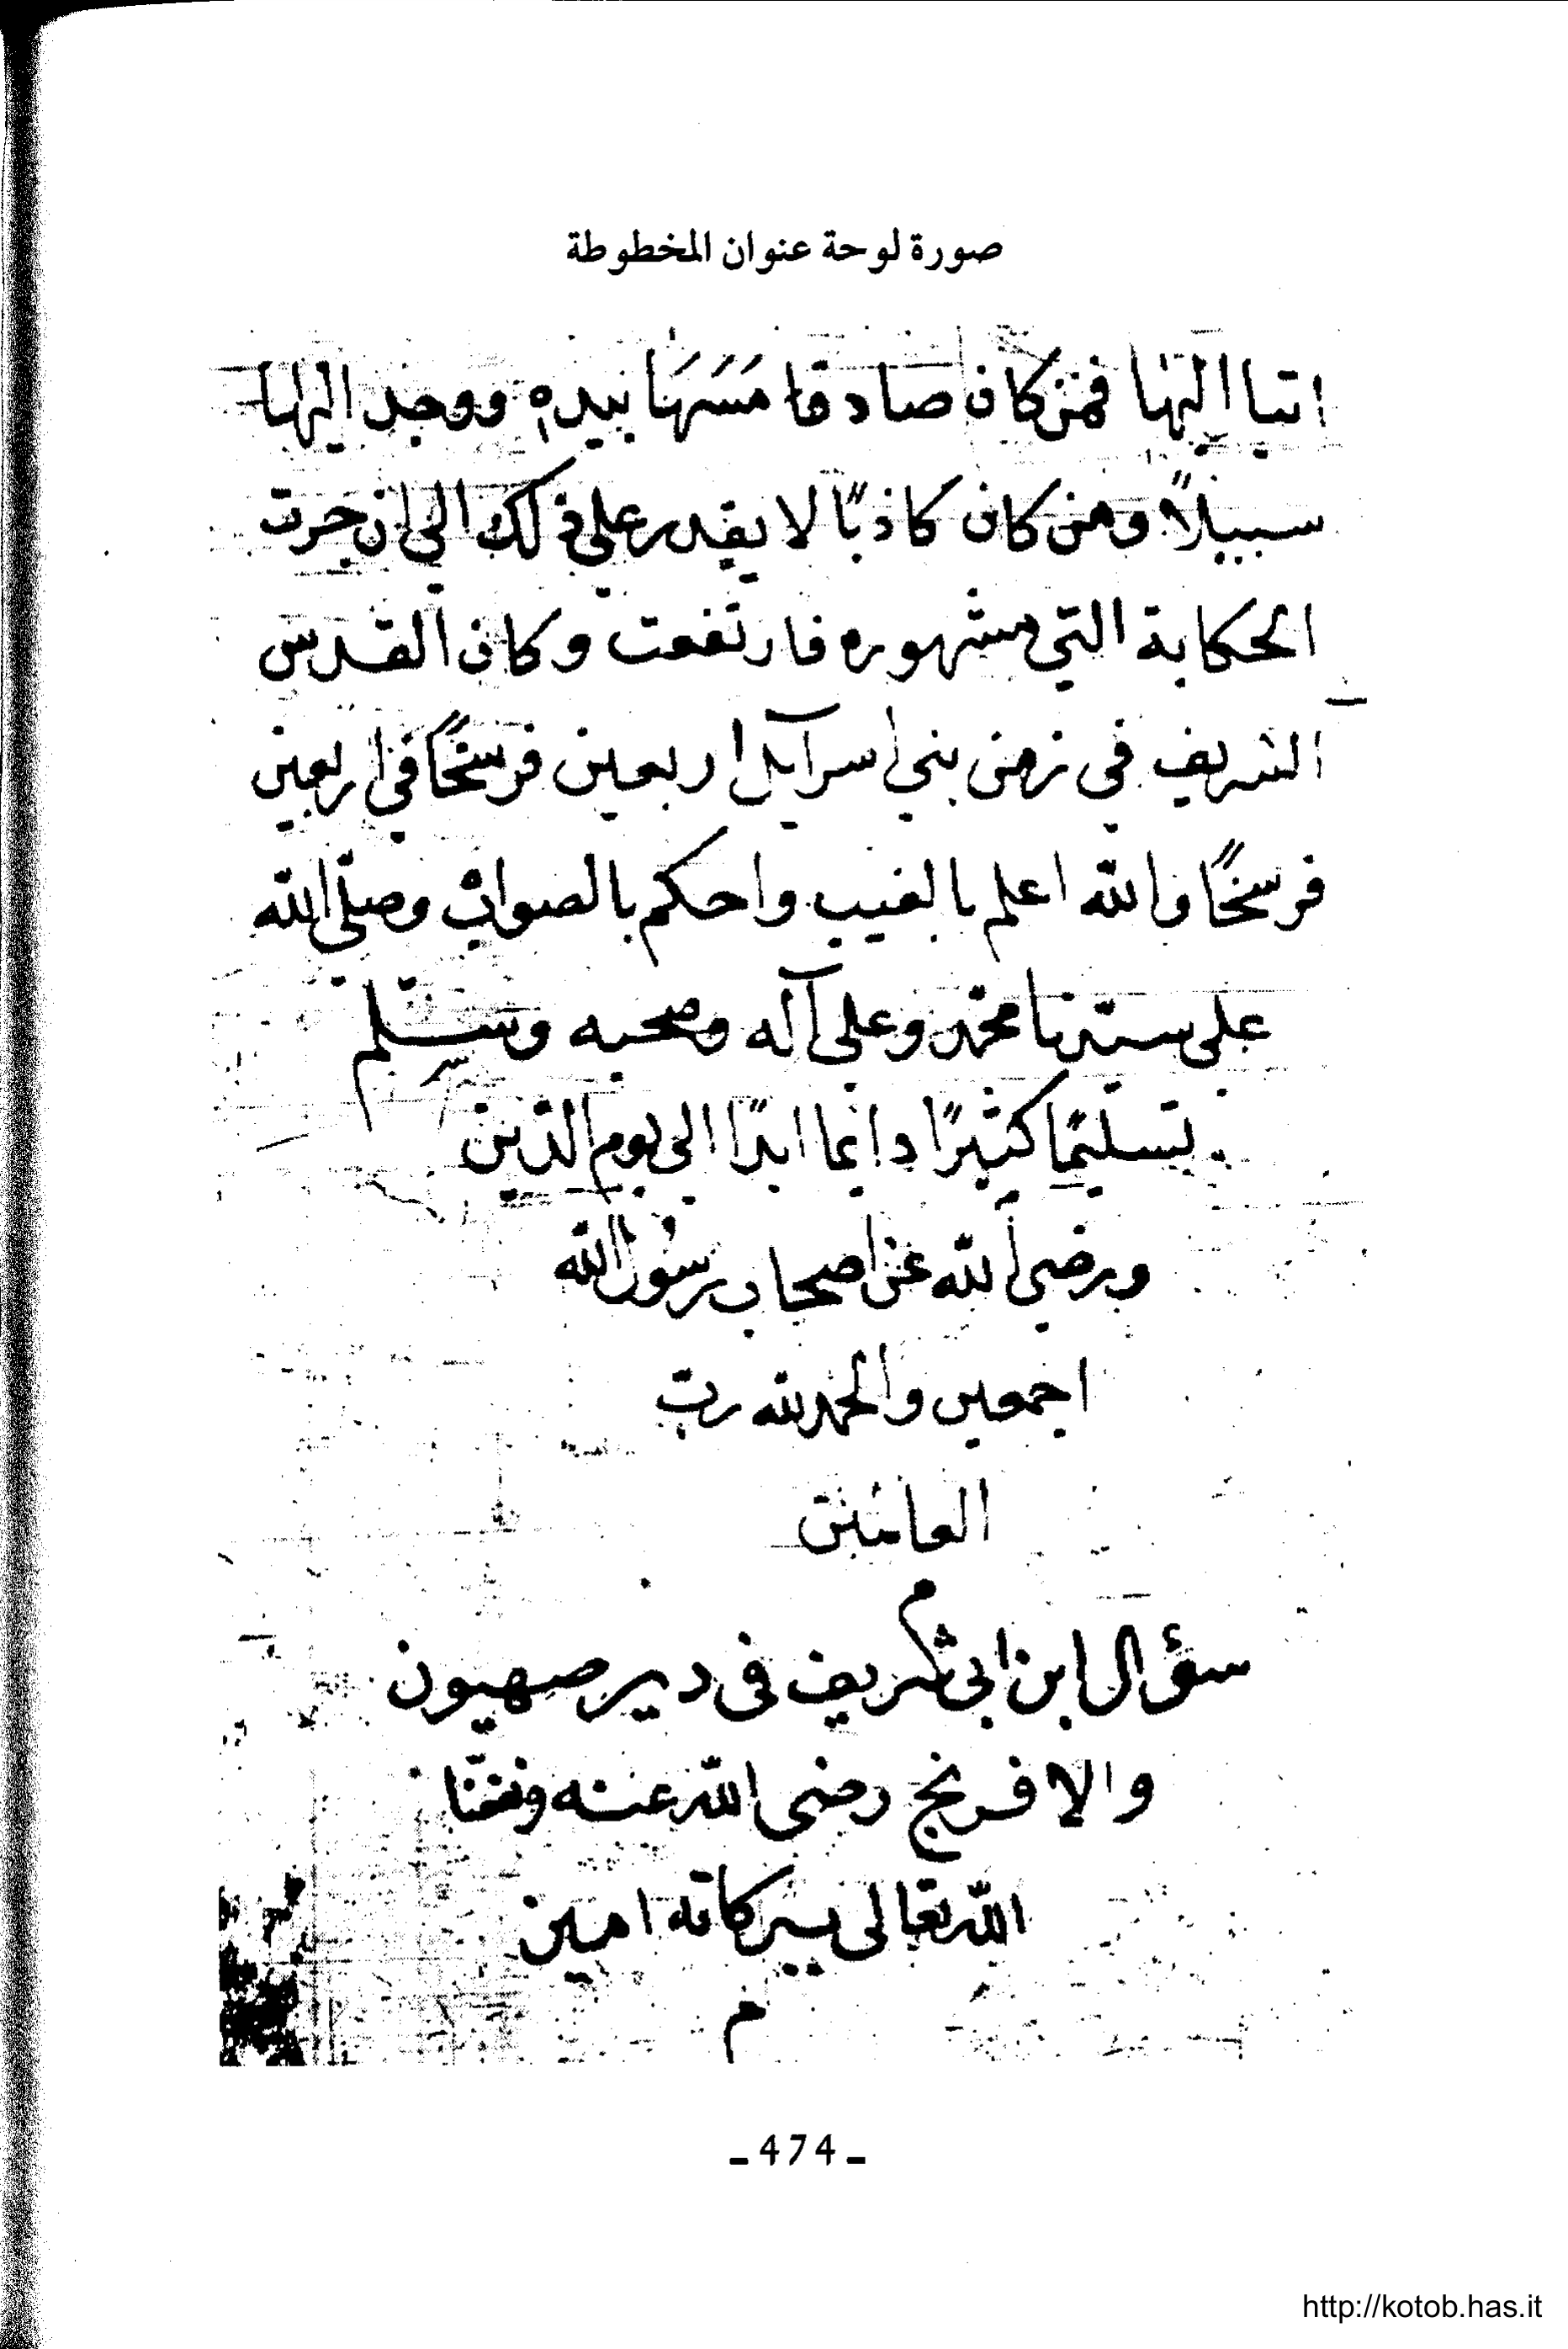 صورة لوحة عنوان المخطوطة
اتيا اليها فمن كان صادقا مَسَهَا بيده ووجد اليها
سبيلاً ومن كان كاذبًا لا يقدر على ذلك الى ان جرت
الحكاية التي مشهوره فارتفعت وكان القدس
الشريف في زمن بني اسرآيل اربعين فرسخًا في اربعين
فرسخًا والله اعلم بالغيب واحكم بالصواب وصلّى الله
على سيّدنا محمّد وعلى آله وصحبه وسلّم
تسليمًا كثيرًا دايما ابدًا الى يوم الدّين
ورضي الله عن اصحاب رسُول الله
اجمعين والحمد لله ربّ
العالمين
م
سؤال ابن ابى شريف فى دير صهيون
والافرنج رضى الله عنه ونفعنا
الله تعالى ببركاته امين
م
ـ 474 ـ
http://kotob.has.it